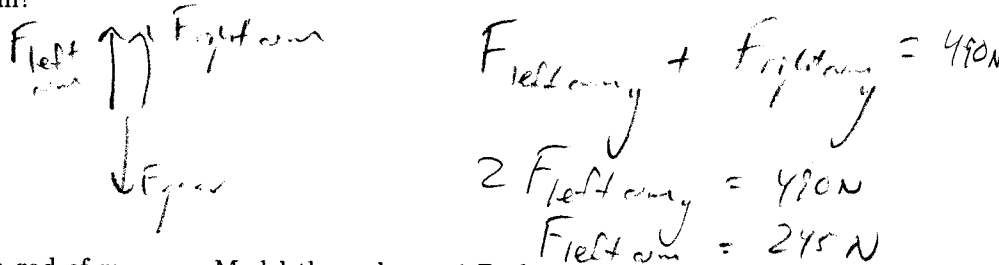 F left arm
F right arm
F grav
F left arm y + F right arm y = 490N
2 F left arm y = 490N
F left arm = 245 N